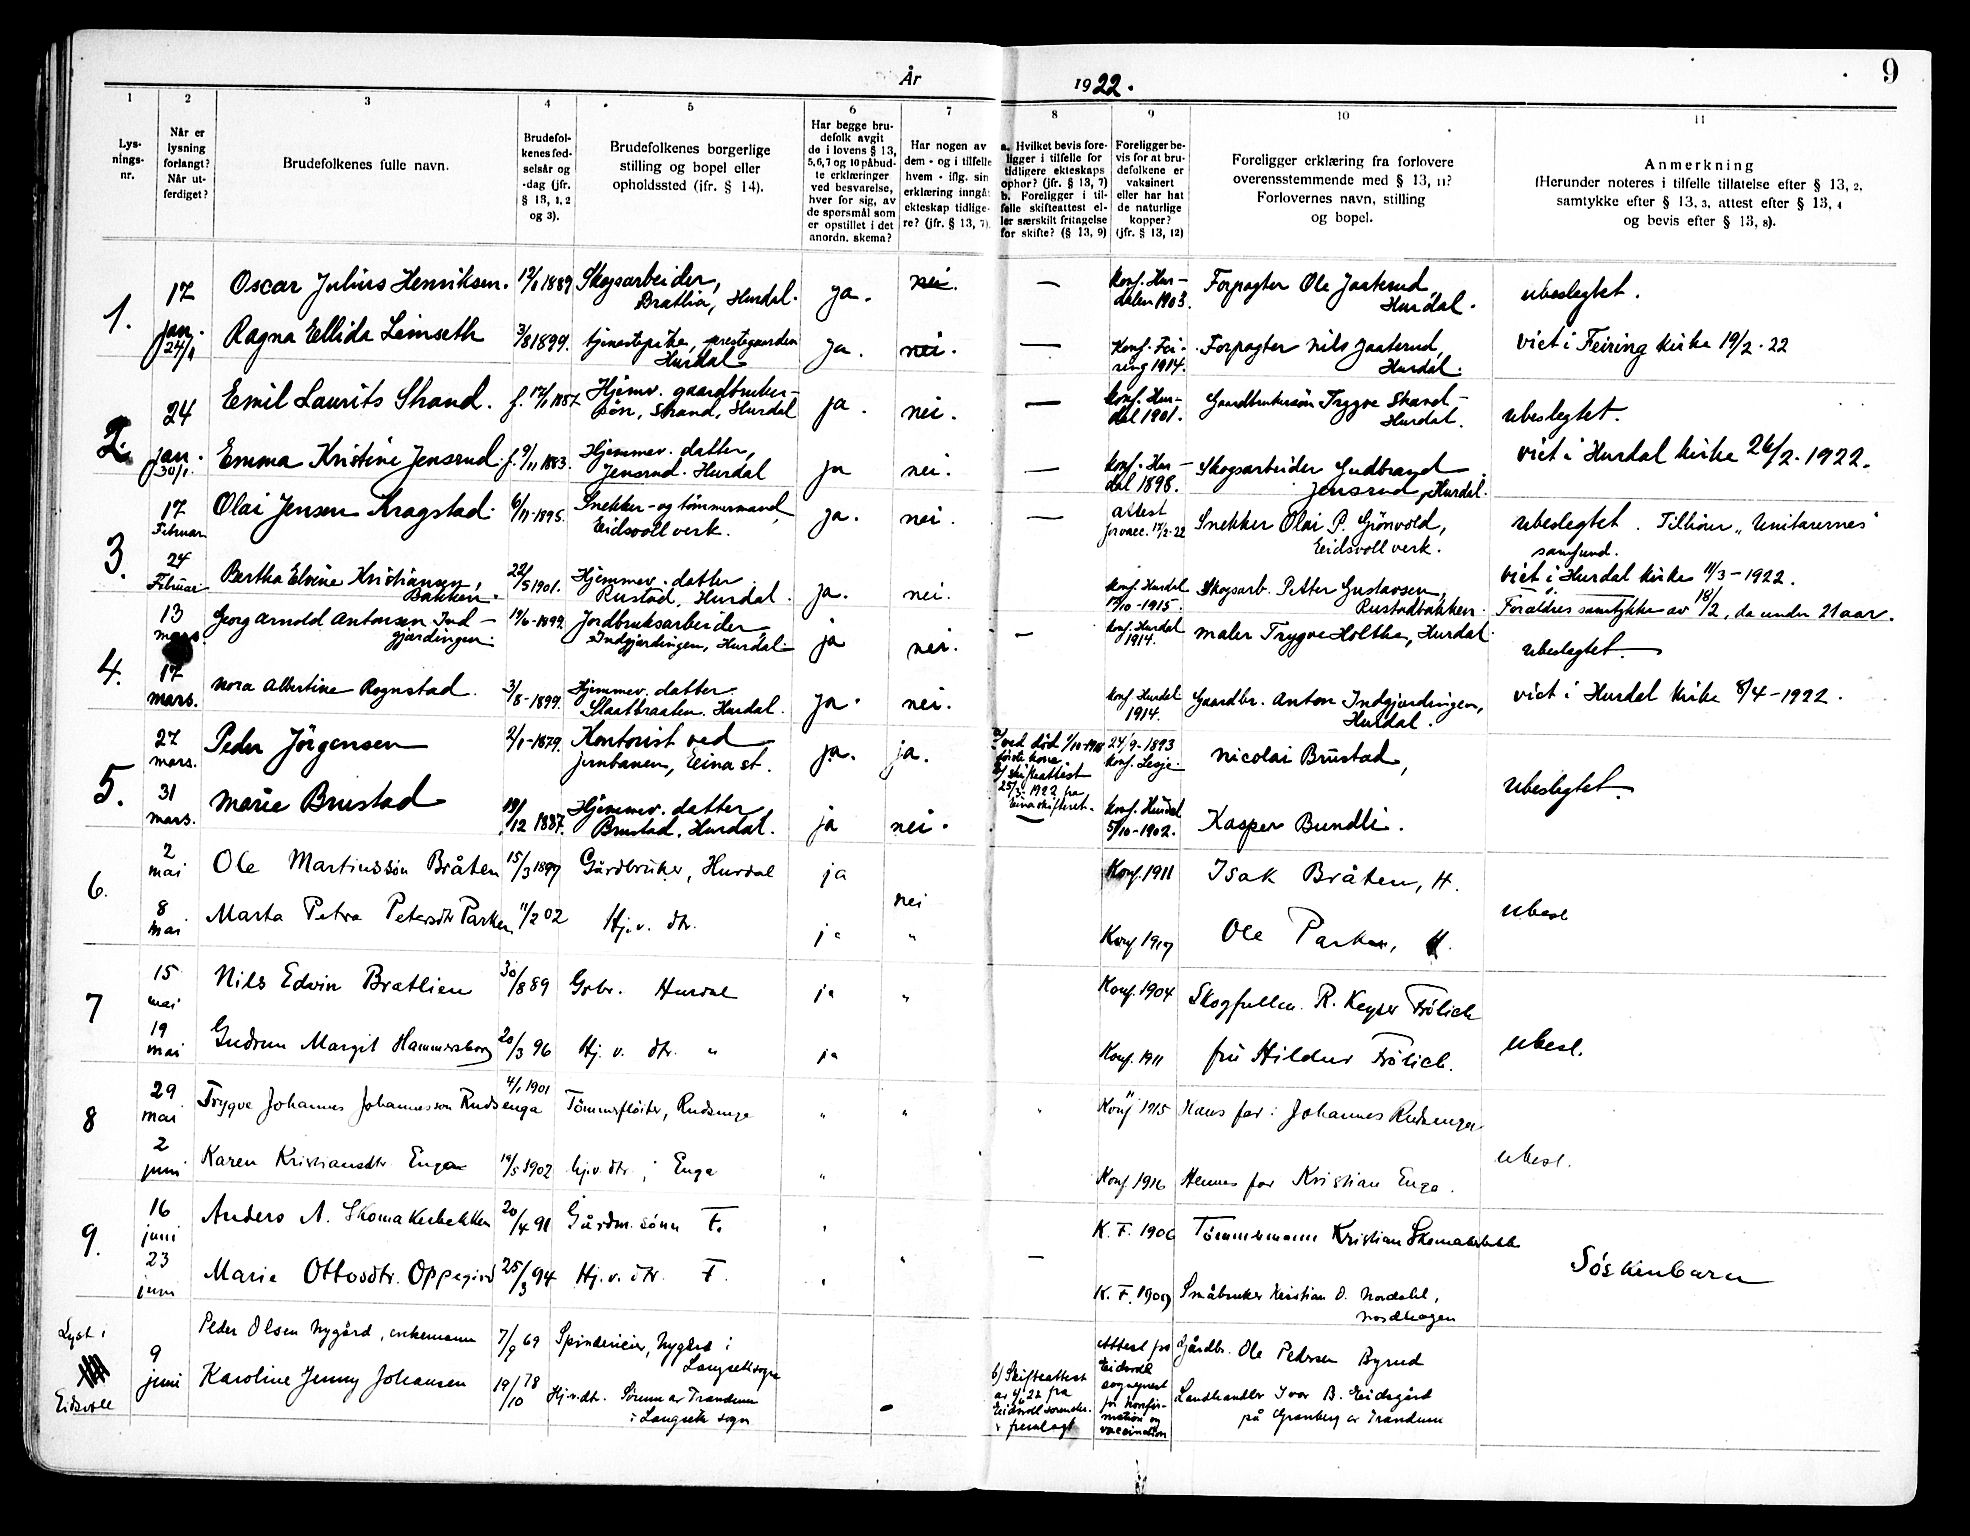 År 1922.
9
1 2 3 4 5 6 7 8 9 10 11
Lys-
nings-
nr.
Når er
lysning
forlangt?
Når ut-
ferdiget?
Brudefolkenes fulle navn.
Brudefol-
kenes fød-
selsår og
-dag (jfr.
§ 13, 1, 2
og 3).
Brudefolkenes borgerlige
stilling og bopel eller
opholdssted (jfr. § 14).
Har begge bru-
defolk avgit
de i lovens § 13,
5,6,7 og 10 påbud-
te erklæringer
ved besvarelse,
hver for sig, av
de spørsmål som
er opstillet i det
anordn. skema?
Har nogen av
dem - og i tilfelle
hvem - iflg. sin
erklæring inngåt
ekteskap tidlige-
re? (jfr. § 13, 7).
a. Hvilket bevis fore-
ligger i tilfelle for
tidligere ekteskaps
ophør? (jfr. § 13, 7)
b. Foreligger i til-
felle skifteattest el-
ler særskilt fritagelse
for skifte? (§ 13, 9)
Foreligger be-
vis for at bru-
defolkene er
vaksinert
eller har hat
de naturlige
kopper?
(jfr. § 13, 12)
Foreligger erklæring fra forlovere
overensstemmende med § 13, 11?
Forlovernes navn, stilling
og bopel.
Anmerkning
(Herunder noteres i tilfelle tillatelse efter § 13, 2,
samtykke efter § 13, 3, attest efter § 13, 4
og bevis efter § 13, 8).
1.
17
jan.
24/1
Oscar Julius Henriksen. 12/1 1889 Skogsarbeider,
Bratlia, Hurdal.
ja. nei. — Konf. Hur-
dalen 1903. Forpagter Ole Jaaterud,
Hurdal. ubeslegtet.
Ragna Ellida Leinseth 3/8 1899. tjenestepike, prestegaarden
Hurdal ja. nei. — Konf. Fei-
ring 1914. Forpagter Nils Jaaterud,
Hurdal. viet i Feiring kirke 19/2. 22
2.
24
jan.
30/1.
Emil Laurits Skand. f. 17/1 1887. Hjemv. gaardbruker-
søn, Skand, Hurdal ja. nei. — Konf. Hur-
dal 1901. Gaardbrukersøn Trygve Skand -
Hurdal. ubeslegtet.
Emma Kristine Jensrud. f. 9/11 1883. Hjemmev. datter,
Jensrud. Hurdal ja nei. — Konf. Hur-
dal 1898. Skogsarbeider Gudbrand
Jensrud, Hurdal. viet i Hurdal kirke 26/2. 1922.
3.
17
Februar
24
Februar
Olai Jensen Kragstad. 6/11-1895. Snekker- og tømmermand,
Eidsvoll verk. ja. nei. — attest
for vacc. 17/2-22 Snekker Olai P. Grönvold,
Eidsvoll verk. ubeslegtet. Tilhører „Unitarernes"
samfund.
Bertha Elvine Kristiansen,
Bakken. 22/5 1901. Hjemmev. datter
Rustad, Hurdal. ja. nei. Konf. Hurdal
17/10-1915. Skogsarb. Petter Gustavsen,
Rustadbakken. viet i Hurdal kirke 11/3-1922.
Forældres samtykke av 18/2, da under 21 aar.
4.
13
mars.
17
mars.
Georg Arnold Antonsen Ind-
gjærdingen. 19/6-1899. Jordbruksarbeider
Indgjærdingen, Hurdal ja nei. — Konf. Hurdal
1914. maler Trygve Holthe, Hurdal. ubeslegtet.
Nora Albertine Rognstad. 3/8-1899. Hjemmev. datter.
Slaatbraaten. Hurdal. ja. nei. Konf. Hurdal
1914. Gaardbr. Anton Indgjærdingen,
Hurdal. viet i Hurdal kirke 8/4-1922.
5.
27
mars.
31
mars.
Peder Jörgensen 2/1-1879. Kontorist ved
jernbanen, Eina st. ja. ja. a/ ved död 1/10-1918
første kone
b/ skifteattest
25/3-1922 fra
Einaskifteret. 24/9-1893
Konf. Lesje. Nicolai Brustad, ubeslegtet.
Marie Brustad 19/12 1887. Hjemmev. datter
Brustad, Hurdal. ja nei. — Konf. Hurdal
5/10-1902. Kasper Bundli.
6.
2
mai
8
mai
Ole Martinssön Bråten 15/3 1897 Gårdbruker, Hurdal ja nei Konf. 1911 Isak Bråten, H. ubesl
Marta Petra Petersdtr Parken 11/2 02 Hj.v. dtr. ja " Konf 1917 Ole Parken, H.
7
15
mai
19
mai
Nils Edvin Bratlien 30/8 89 Grbr. Hurdal ja " Konf. 1904 Skogfullm. R. Keyser Frölich ubesl.
Gudrun Margit Hammersborg 20/3 96 Hj. v. dtr. " ja Konf. 1911 fru Hildur Frölich.
8
29
mai
2
juni
Trygve Johannes Johannesson Rudsenga 4/1 1901 Tömmerfløiter, Rudsenga " " " Konf 1915 Hans far: Johannes Rudsenga ubesl.
Karen Kristiansdtr Enga 19/5 1902 hj.v. dtr; Enga " Konf 1916 Hennes far Kristian Enga.
9.
16
juni
23
juni
Anders A. Skomakerbekken 20/4 91 Gårdm. sønn F. " " — K. F. 1906 Tømmermann Kristian Skomakerbekk Söskenbarn
Marie Ottosdtr. Oppegård 25/3 94 Hj.v. dtr. F. " K. F. 1909 Småbruker Kristian O. Nordahl,
Nordhagen
Lyst i
Eidsvoll
9
juni
Peder Olsen Nygård, enkemann 7/9 69 Spinderieier, Nygård i
Langset sogn b) Skifteattest
av 4/ 22 fra
Eidsvoll sorenskr.
fremlagt Attest fra
Eidsvoll
sogneprest
for konfir-
mation og
vaccination Gårdbr. Ole Pedersen Byrud
Karoline Jenny Johansen 19/10 78 Hj.v.dt. Sörum av Trandum
i Langseth sogn Landhandler Ivar B. Eidsgård
på Granberg av Trandum